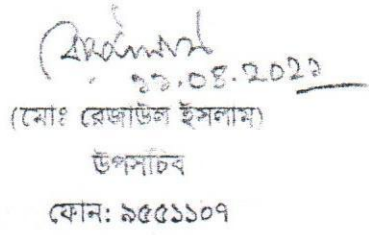 ১১.০৪.২০২১
(মোঃ রেজাউল ইসলাম)
উপসচিব
ফোন: ৯৫৫১১০৭